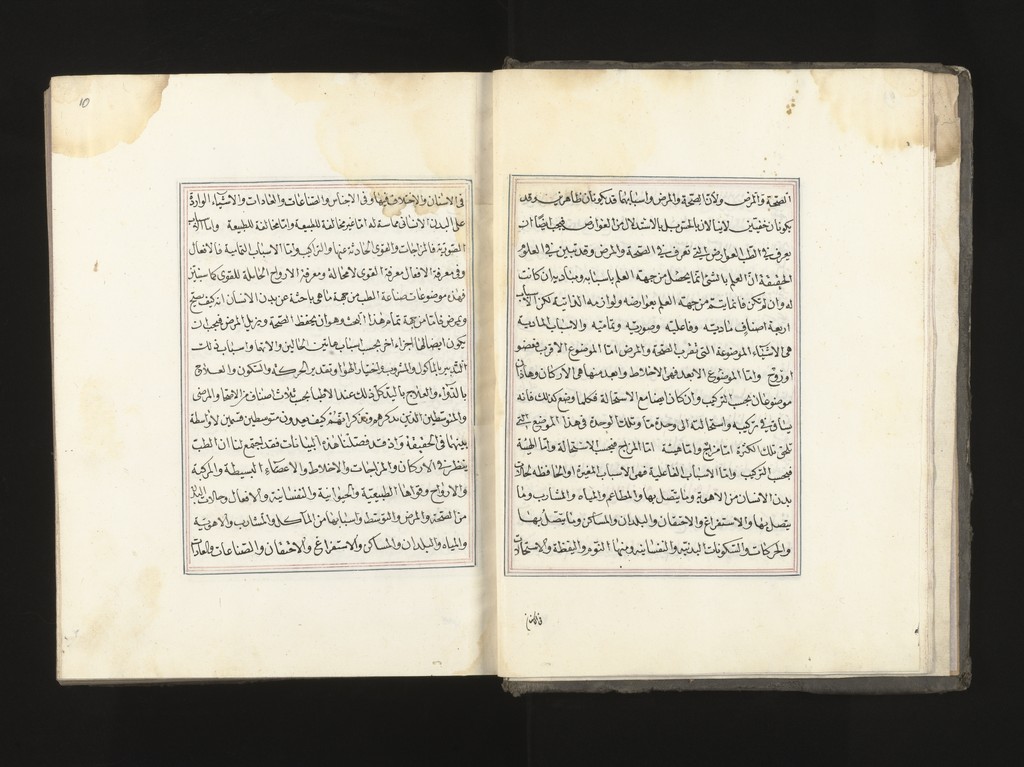 الصحة والمرض ولان الصحة والمرض واسبابهما قد يكونان ظاهرين وقد
يكونان خفيين لاينالان بالحس بل بالاستدلال من العوارض فيجب ايضا ان
يعرف في الطب العوارض التي تعرض في الصحة والمرض وقد تبين في العلوم
الحقيقة ان العلم بالشئ انما يحصل من جهة العلم باسبابه ومباديه ان كانت
له وان لم تكن فانما يتم من جهة العلم بعوارضه ولوازمه الذاتية لكن الاسباب
اربعة اصناف ماديه وفاعليه وصوريه وتماميه والاسباب المادية
هى الاشياء الموضوعة التى فيها تقرر الصحة والمرض اما الموضوع الاقرب فعضو
او روح واما الموضوع الابعد فهى الاخلاط وابعد منهما هى الاركان وهذان
موضوعان بحسب التركيب وان كان ايضا مع الاستحالة فكلما وضع كذلك فانه
يساق في تركيبه واستحالته الى وحدة ما وتلك الوحدة في هذا الموضع التى
تلحق تلك الكثرة اما مزاج واما هيئة اما المزاج فبحسب الاستحالة واما الهيئة
فبحسب التركيب واما الاسباب الفاعلية فهى الاسباب المغيرة او الحافظه لحالات
بدن الانسان من الاهوية وما يتصل بها والمطاعم والمياه والمشارب وما
يتصل بها والاستفراغ والاحتقان والبلدان والمساكن وما يتصل بها
والحركات والسكونات البدنيه والنفسانيه ومنها النوم واليقظة والاستحالة
فى الاسنان
فى الاسنان والاختلاف فيها وفى الاجناس والصناعات والعادات والاشياء الواردة
على البدن الانسانى مماسة له اما غير مخالفة للطبيعة واما مخالفة للطبيعة واما الاسباب
الصورية فالمزاجات والقوى الحادثة بعدها والتراكيب واما الاسباب التمامية فالافعال
وفى معرفة الافعال معرفة القوى لامحالة ومعرفة الارواح الحاملة للقوى كما سنبين
فهذه موضوعات صناعة الطب من جهة ما هى باحثة عن بدن الانسان انه كيف يصح
ويمرض فاما من جهة تمام هذا البحث وهو ان يحفظ الصحة ويزيل المرض فيجب ان
يكون ايضا لها اجزاء اخر بحسب اسباب هاتين الحالين والاتهما واسباب ذلك
التدبير بالماكول والمشروب واختيار الهواء وتقدير الحركة والسكون والعلاج
بالدواء والعلاج باليد كل ذلك عند الاطباء بحسب ثلاثة اصناف من الاصحاء والمرضى
والمتوسطين الذين نذكرهم ونذكر انهم كيف يعدون متوسطين قسمين لا واسطة
بينهما فى الحقيقة واذ قد فصلنا هذه البيانات فقد اجتمع لنا ان الطب
ينظر في الاركان والمزاجات والاخلاط والاعضاء البسيطة والمركبة
والارواح وقواها الطبيعية والحيوانية والنفسانية والافعال وحالات البدن
من الصحة والمرض والتوسط واسبابها من المآكل والمشارب والاهوية
والمياه والبلدان والمساكن والاستفراغ والاحتقان والصناعات والعادات
10